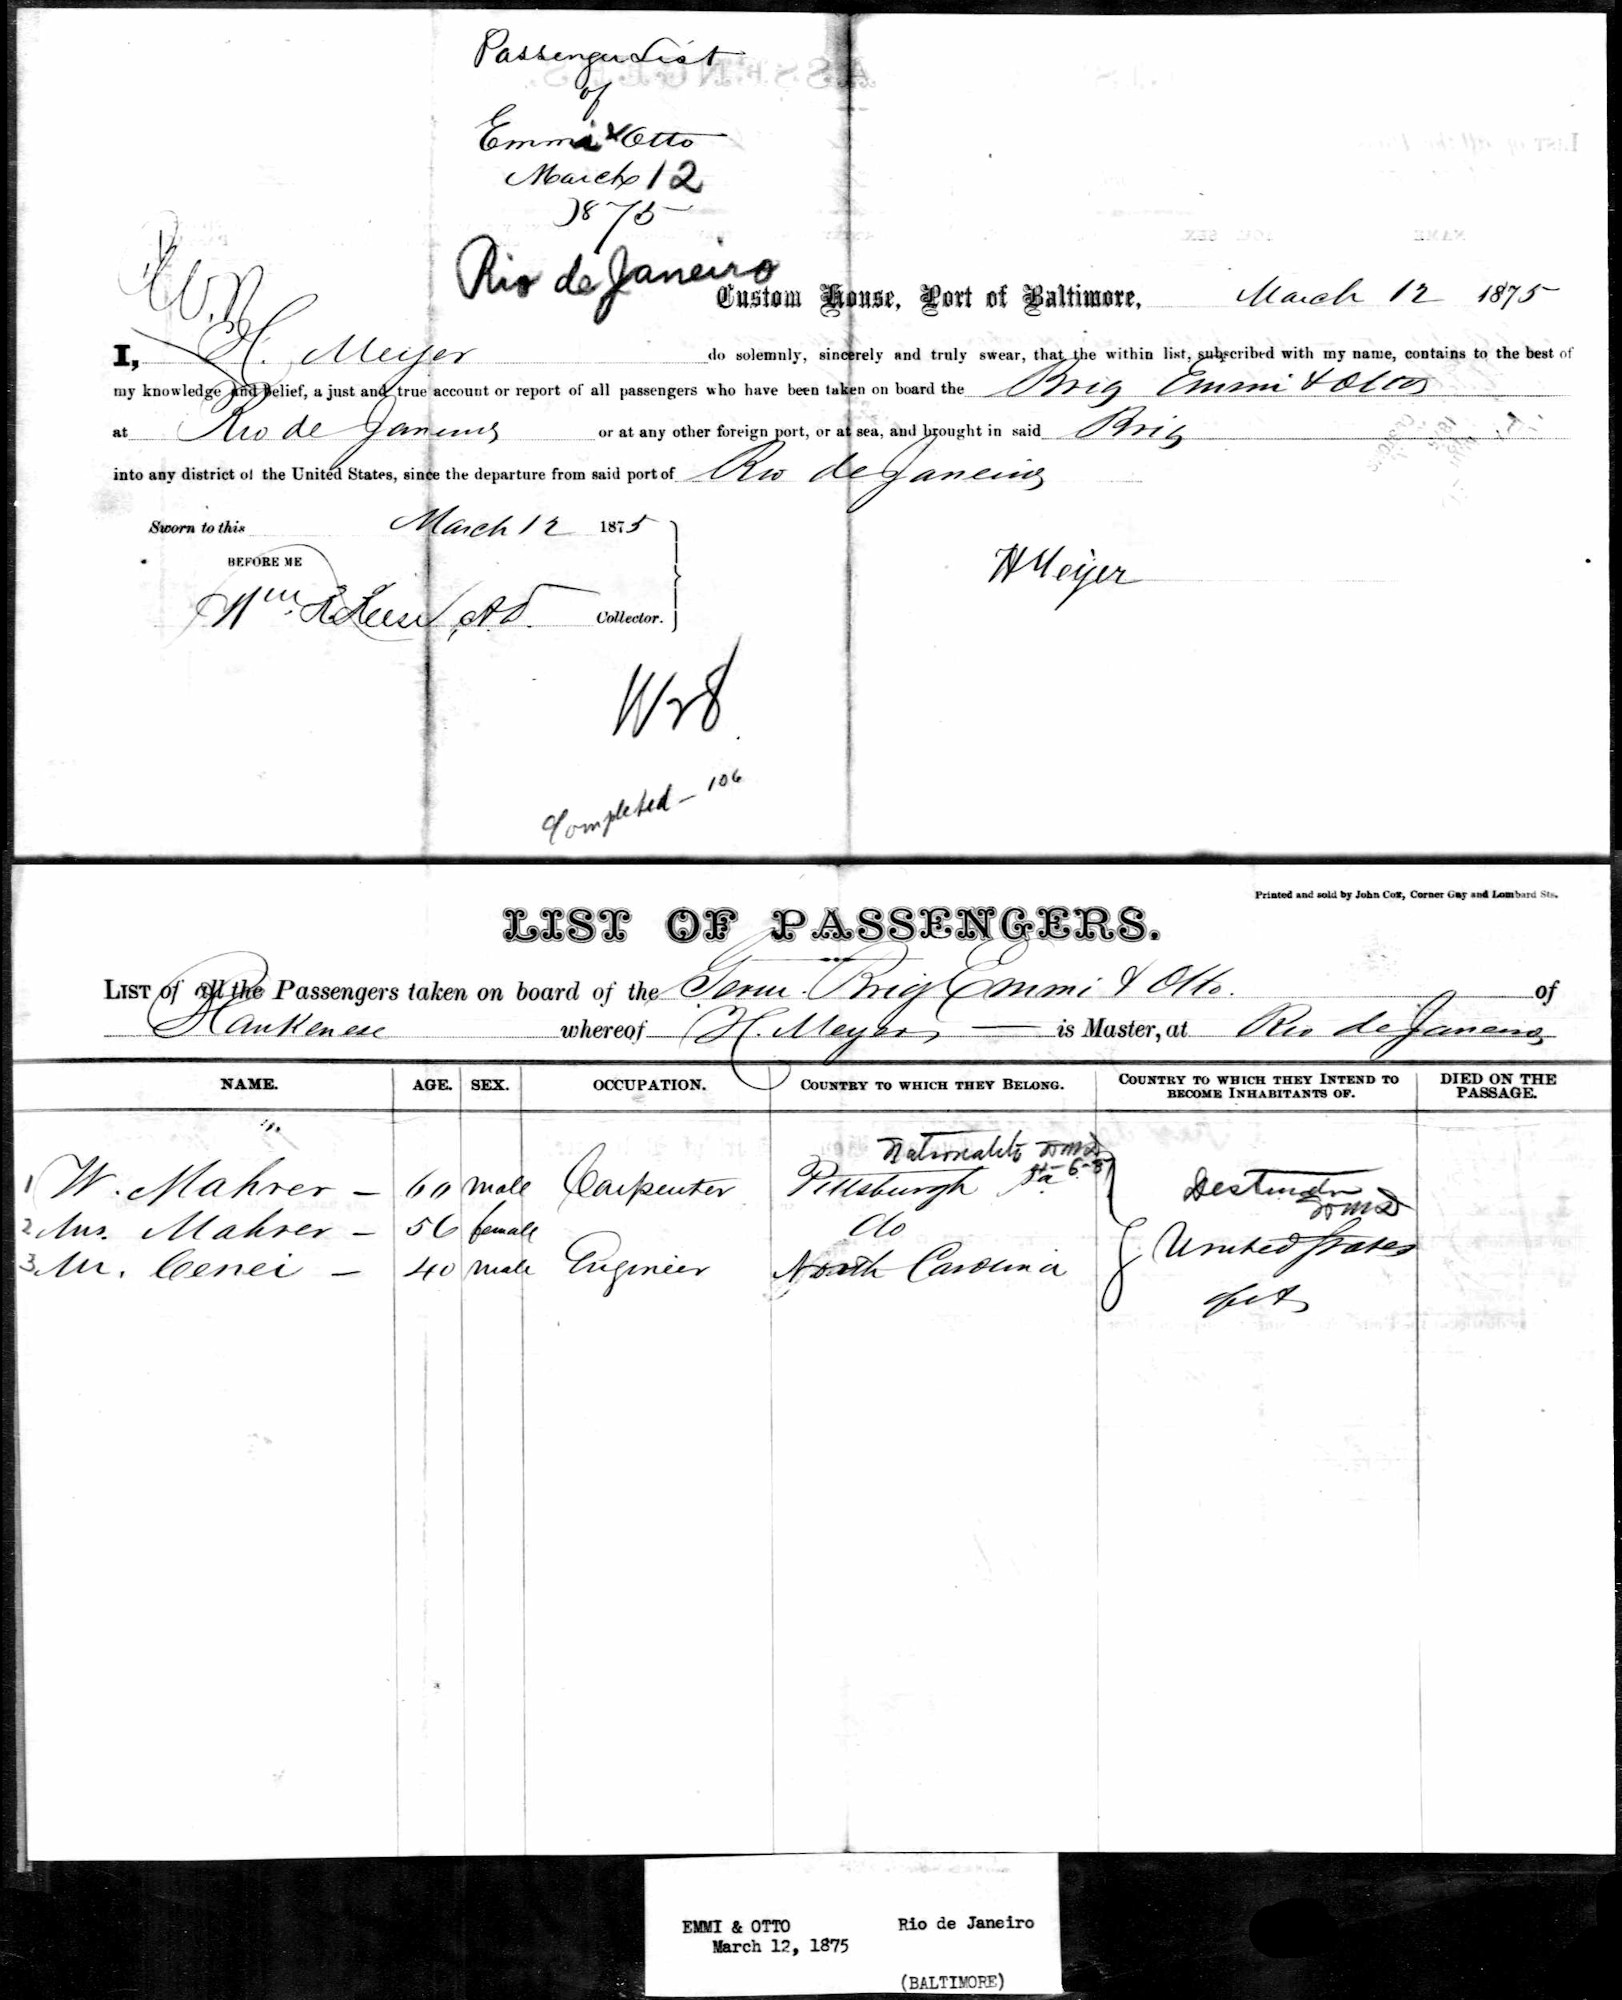 Passenger List
of
Emmi & Otto
March 12
1875
Rio de Janeiro
Custom House, Port of Baltimore, March 12 1875
I, H. Meyer do solemnly, sincerely and truly swear, that the within list, subscribed with my name, contains to the best of
my knowledge and belief, a just and true account or report of all passengers who have been taken on board the Brig Emmi & Otto
at Rio de Janeiro or at any other foreign port, or at sea, and brought in said Brig
into any district of the United States, since the departure from said port of Rio de Janeiro
Sworn to this March 12 1875
BEFORE ME
Wm. Collector.
H Meyer
Completed - 106
Printed and sold by John Cox, Corner Gay and Lombard Sts.
LIST OF PASSENGERS.
LIST of all the Passengers taken on board of the Brig Emmi & Otto. of
whereof H. Meyer is Master, at Rio de Janeiro
NAME. AGE. SEX. OCCUPATION. COUNTRY TO WHICH THEY BELONG. COUNTRY TO WHICH THEY INTEND TO BECOME INHABITANTS OF. DIED ON THE PASSAGE.
1 W. Mahrer - 60 male Carpenter Pittsburgh Pa
2 Mrs. Mahrer - 56 female do
3 Mr. - 40 male Engineer North Carolina United States
EMMI & OTTO Rio de Janeiro
March 12, 1875
(BALTIMORE)